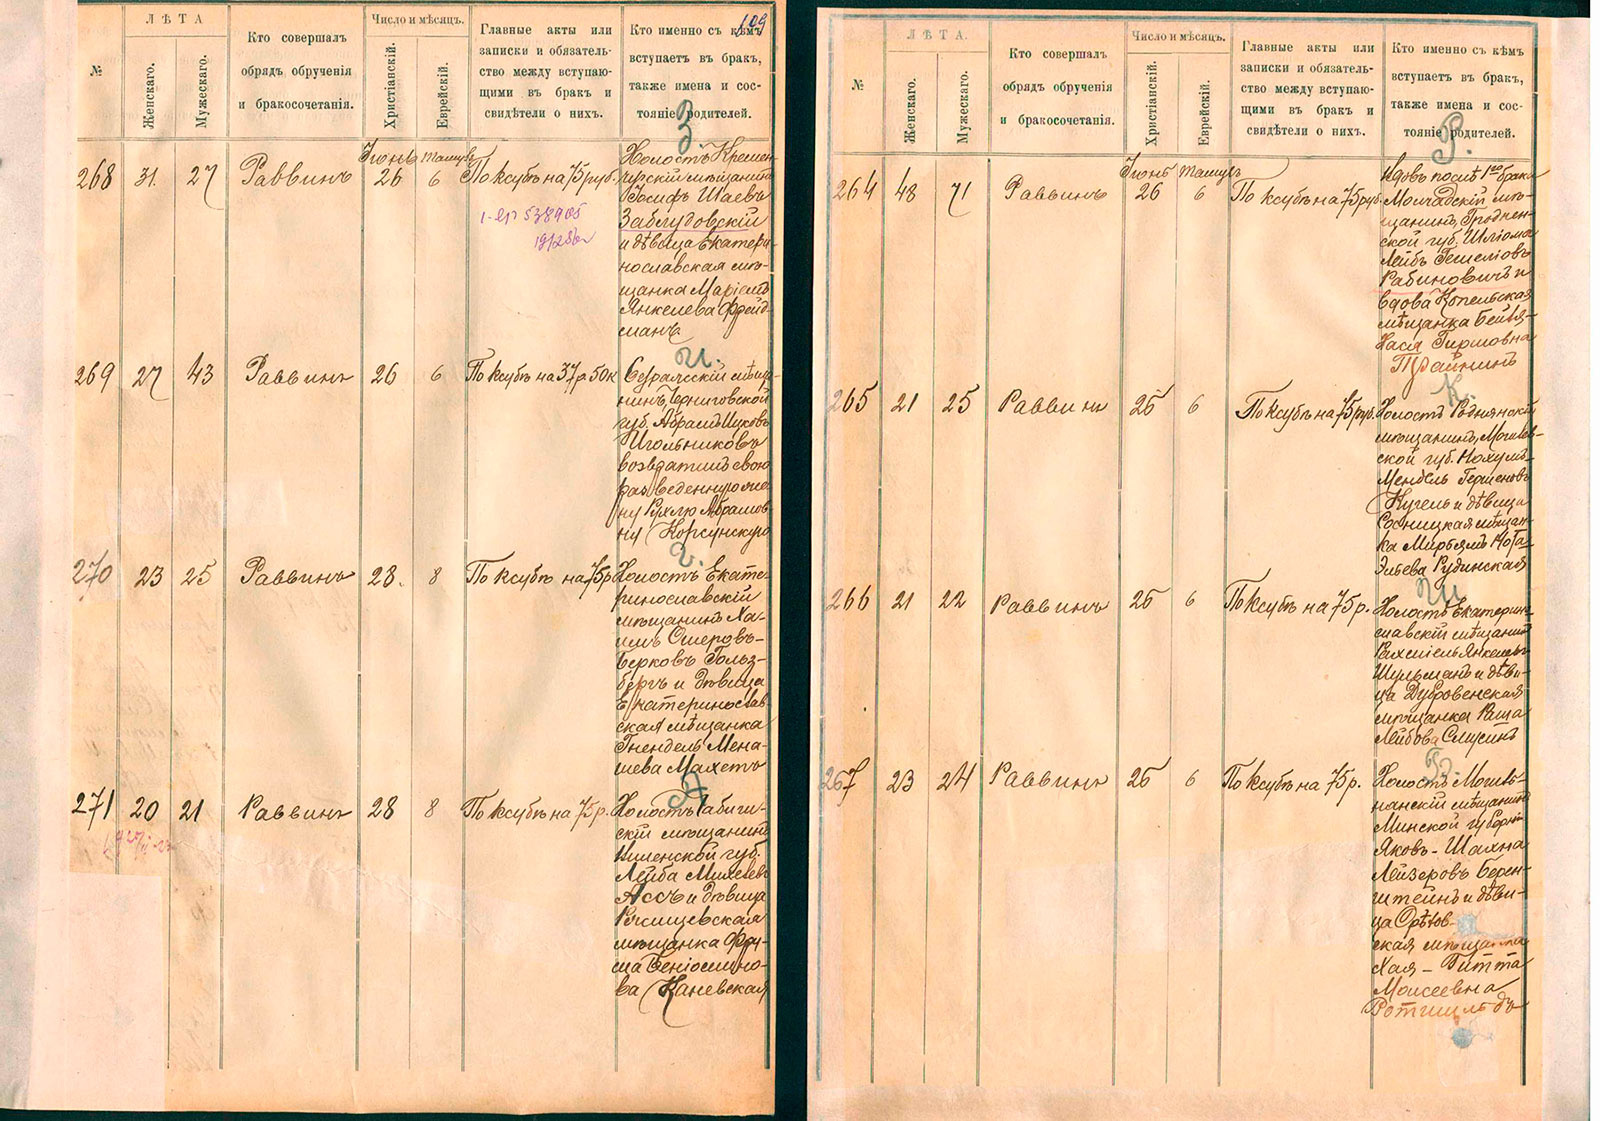 109
№
ЛѢТА
Женскаго.
Мужескаго.
Кто совершалъ
обрядъ обрученія
и бракосочетанія.
Число и мѣсяцъ.
Христіанскій.
Еврейскій.
Главные акты или
записки и обязатель-
ство между вступаю-
щими въ бракъ и
свидѣтели о нихъ.
Кто именно съ кѣмъ
вступаетъ въ бракъ,
также имена и сос-
тояніе родителей.
З
268 31. 27 Раввинъ Іюнь 26 Тамузъ 6 По ксубѣ на 75 руб.
Холостъ Кремен-
чугскій мѣщанинъ
Іосифъ Шаевъ
Заблудовскій
и дѣвица Екатери-
нославская мѣ-
щанка Маріемъ
Янкелева Фрейд-
манъ
И.
269 27 43 Раввинъ 26 6 По ксубѣ на 37 р. 50 к
мѣща-
нинъ, Черниговской
губ. Абрамъ Ицковъ
Игольниковъ
свою
разведенную же-
ну Рухлю Абрамов-
ну Корсунскую
Г.
270 23 25 Раввинъ 28. 8 По ксубѣ на 75 р
Холостъ Екате-
ринославскій
мѣщанинъ Ха-
имъ Ошеровъ-
Берковъ Гольз-
бергъ и дѣвица
Екатеринослав-
ская мѣщанка
Гнендель Мена-
шева Махетъ
А
271 20 21 Раввинъ 28 8 По ксубѣ на 75 р.
Холостъ
скій мѣщанинъ
губ.
Лейба
Ассъ и дѣвица
ская
мѣщанка Фру-
ма Беніомино-
ва Каневская
№
ЛѢТА.
Женскаго.
Мужескаго.
Кто совершалъ
обрядъ обрученія
и бракосочетанія.
Число и мѣсяцъ.
Христіанскій.
Еврейскій.
Главные акты или
записки и обязатель-
ство между вступаю-
щими въ бракъ и
свидѣтели о нихъ.
Кто именно съ кѣмъ
вступаетъ въ бракъ,
также имена и сос-
тояніе родителей.
Р.
264 48 71 Раввинъ Іюнь 26 Тамузъ 6 По ксубѣ на 75 руб.
Вдовъ послѣ 1го брака
Молчадскій мѣ-
щанинъ, Гроднен-
ской губ. Шліома
Лейбъ Гешеліовъ
Рабиновичъ и
вдова Копельская
мѣщанка Бейля-
Хася Гиршовна
Трайнинъ
К.
265 21 25 Раввинъ 26 6 По ксубѣ на 75 руб.
Холостъ Роднянскій
мѣщанинъ, Могилев-
ской губ. Нохумъ-
Мендель Гершеновъ
Кугель и дѣвица
Сосницкая мѣщан-
ка Мирьямъ Нота-
Эльева Рудинская
Ш
266 21 22 Раввинъ 26 6 По ксубѣ на 75 р.
Холостъ Екатерино-
славскій мѣщанинъ
Ехеліель Янкелевъ
Шульманъ и дѣви-
ца Дубровенская
мѣщанка Раша
Лейбова Слуцкинъ
Б.
267 23 24 Раввинъ 26 6 По ксубѣ на 75 р.
Холостъ Могиль-
нянскій мѣщанинъ
Минской губерніи
Яковъ-Шахна
Лейзеровъ Берен-
штейнъ и дѣви-
ца
ская мѣщанка
Хая-Гитта
Моисеевна
Ротшильдъ